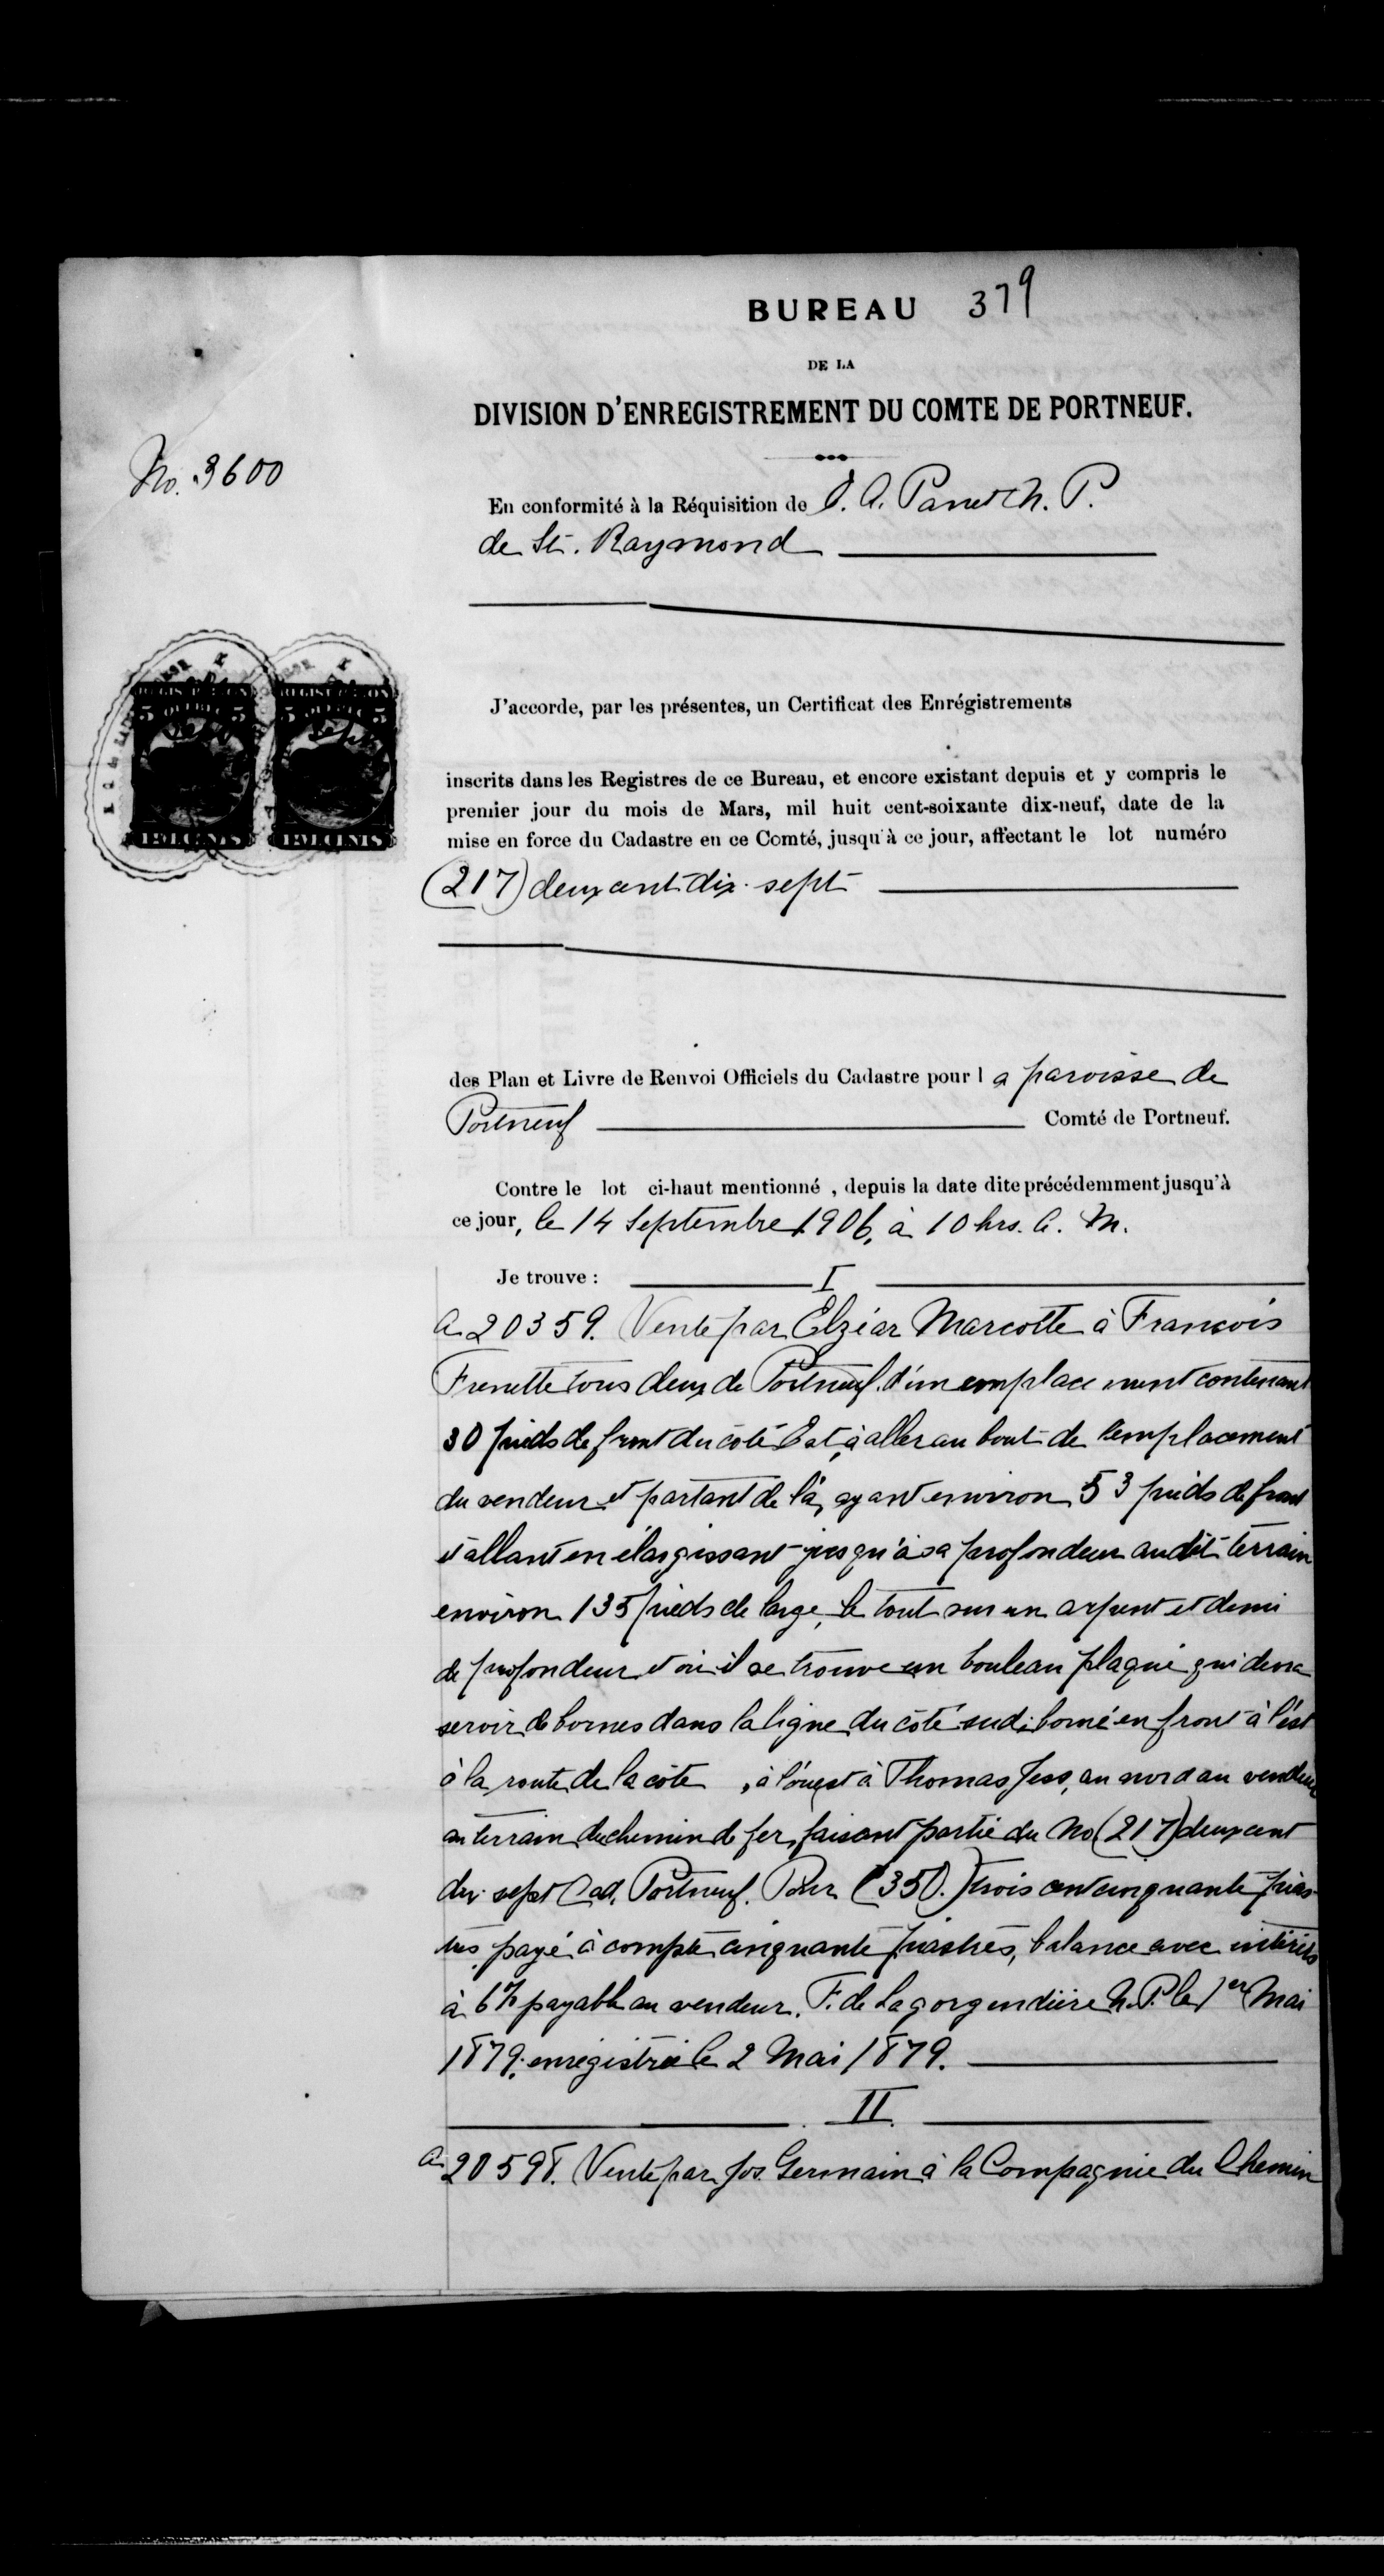 BUREAU 379
DE LA
DIVISION D'ENREGISTREMENT DU COMTE DE PORTNEUF.
No. 3600
En conformité à la Réquisition de J. A. Panet N. P.
de St. Raymond
REGISTRATION REGISTRATION
5 QUEBEC 5 5 QUEBEC 5
J'accorde, par les présentes, un Certificat des Enrégistrements
inscrits dans les Registres de ce Bureau, et encore existant depuis et y compris le
premier jour du mois de Mars, mil huit cent-soixante dix-neuf, date de la
mise en force du Cadastre en ce Comté, jusqu'à ce jour, affectant le lot numéro
(217) deux cent dix-sept
des Plan et Livre de Renvoi Officiels du Cadastre pour la paroisse de
Portneuf Comté de Portneuf.
Contre le lot ci-haut mentionné , depuis la date dite précédemment jusqu'à
ce jour, le 14 Septembre 1906, à 10 hrs. A. M.
Je trouve : I
A 20359. Vente par Elzéar Marcotte à François
Frenette tous deux de Portneuf, d'un emplacement contenant
30 pieds de front du côté Est, à aller au bout de l'emplacement
du vendeur et partant de là, ayant environ 53 pieds de front
et allant en élargissant jusqu'à sa profondeur audit terrain
environ 135 pieds de large, le tout sur un arpent et demi
de profondeur et où il se trouve un bouleau plaqué qui devra
servir de bornes dans la ligne du côté sud; borné en front à l'est
à la route de la côte , à l'ouest à Thomas Jess, au nord au vendeur
au terrain du chemin de fer, faisant partie du No (217) deux cent
dix-sept Cad. Portneuf. Pour (350.) trois cent cinquante pias-
tres, payé à compte cinquante piastres, balance avec intérêts
à 6% payable au vendeur. F. de Lagorgendière N. P. le 1er Mai
1879; enregistrée le 2 Mai 1879.
II
A 20598. Vente par Jos. Germain à la Compagnie du Chemin